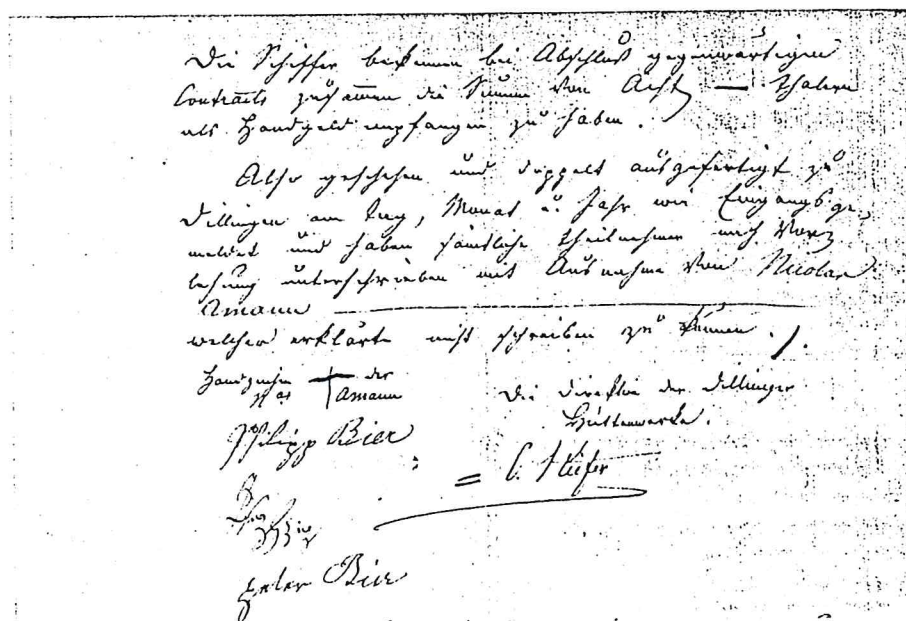 Die Schiffer bekennen bei Abschluß gegenwärtigen
Contracts zusammen die Summe von Acht — Thalern
als Handgeld empfangen zu haben.
Also geschehen und doppelt ausgefertigt zu
Dillingen am Tag, Monat u. Jahr wie Eingangs ge-
meldet und haben sämtliche Theilnehmer nach Vor-
lesung unterschrieben mit Ausnahme von Nicolas
Amann
welcher erklärte nicht schreiben zu können ./.
Handzeichen + des
Amann
Die Direktion der Dillinger
Hüttenwerke.
Philipp Bier
Peter Bier